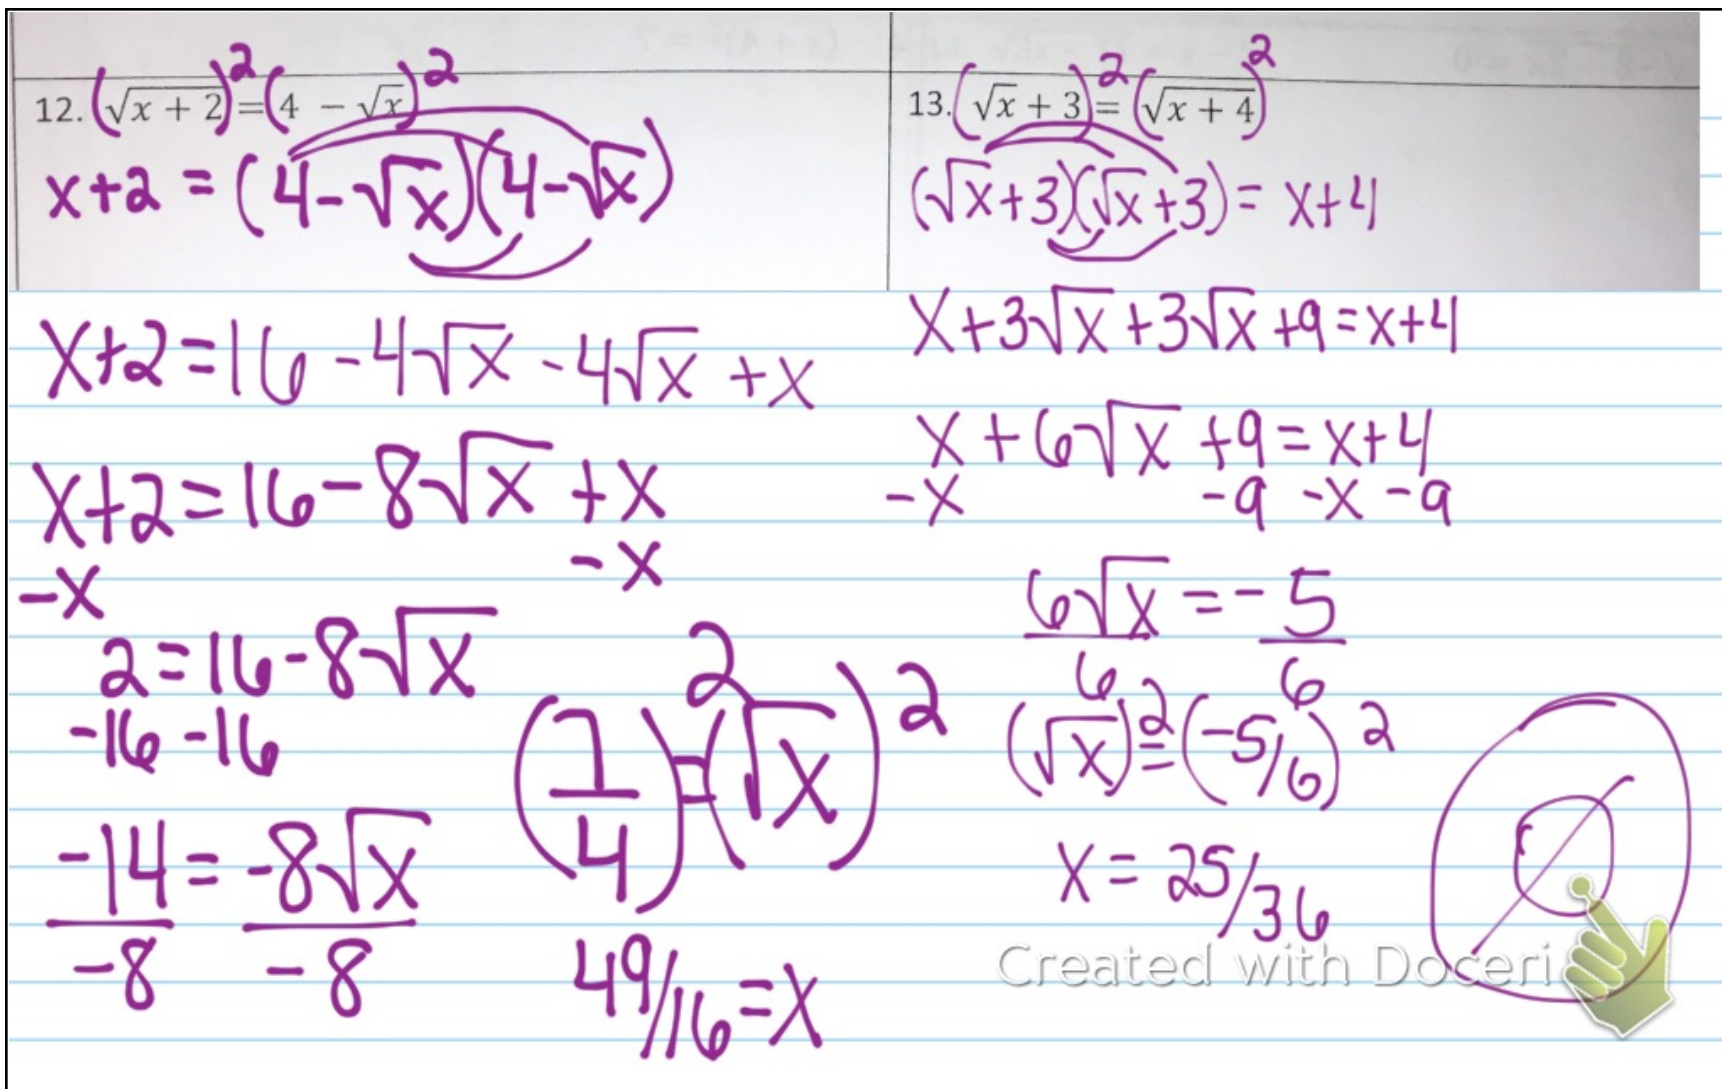 12. (√(x + 2))² = (4 − √x)²
x+2 = (4-√x)(4-√x)
x+2=16-4√x-4√x+x
x+2=16-8√x+x
-x -x
2=16-8√x
-16 -16
-14 = -8√x
-8 -8
(7/4)² = (√x)²
49/16=x
13. (√x + 3)² = (√(x + 4))²
(√x+3)(√x+3) = x+4
x+3√x+3√x+9=x+4
x+6√x+9=x+4
-x -9 -x -9
6√x = -5
6 6
(√x)² = (-5/6)²
x = 25/36
∅
Created with Doceri